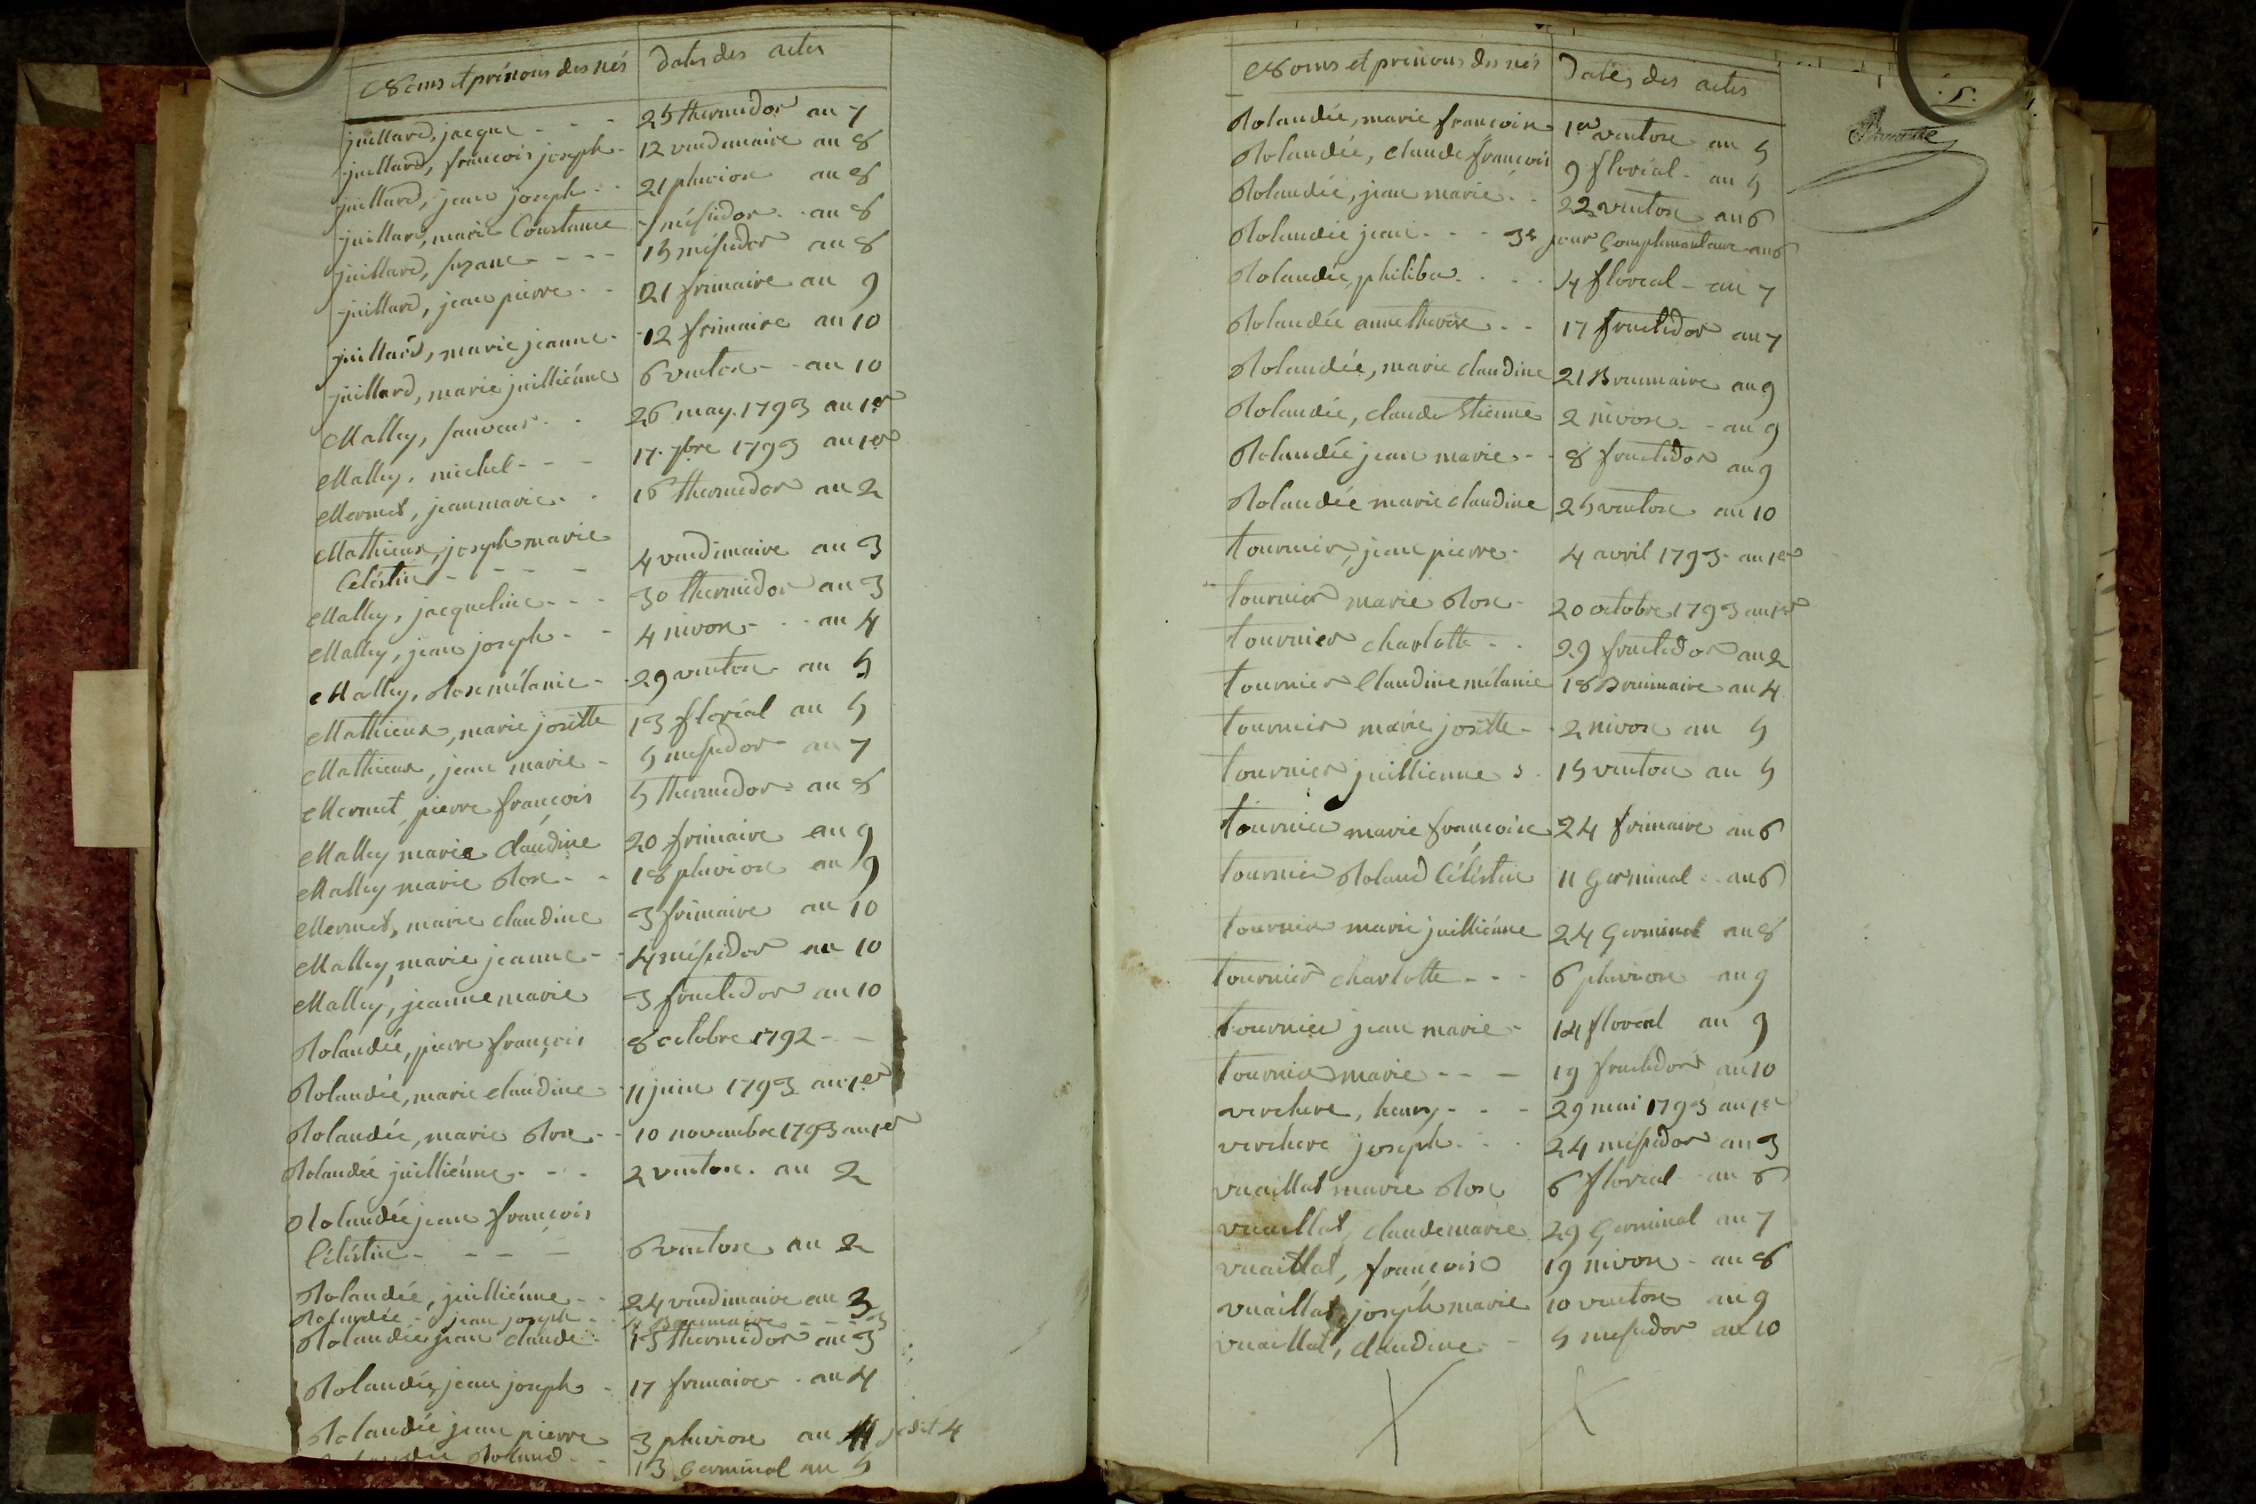 Noms et prénoms des nés | Dates des actes
juillard, jacque - - - 25 thermidor an 7
juillard, francois joseph - 12 vendemaire an 8
juillard, jean joseph - - 21 pluviose an 8
juillard, marie Constance - 1 méssidor - - an 8
juillard, suzane - - - - 13 méssidor an 8
juillard, jean pierre - - 21 frimaire an 9
juillard, marie jeanne - 12 frimaire an 10
juillard, marie juilliénne 6 ventose - - an 10
Malley, sauveur - - 26 may 1793 an 1er
Malley, michel - - - 17 7bre 1793 an 1er
Mermet, jean marie - - 16 thermidor an 2
Mathieux, joseph marie
Céléstin - - - - - 4 vendimaire an 3
Malley, jacqueline - - - 30 thermidor an 3
Malley, jean joseph - - 4 nivose - - - an 4
Malley, Rose mélanie - - 29 ventose an 5
Mathieux, marie josette 13 floréal an 5
Mathieux, jean marie - 5 messidor an 7
Mermet, pierre françois 5 thermidor - an 8
Malley marie claudine 20 frimaire an 9
Malley marie Rose - - 18 pluviose an 9
Mermet, marie claudine 3 frimaire an 10
Malley, marie jeanne - - 4 méssidor an 10
Malley, jeanne marie 3 fructidor an 10
Rolandée, pierre françois 8 octobre 1792 - -
Rolandée, marie claudine 11 juin 1793 an 1er
Rolandée, marie Rose - - 10 novembre 1793 an 1er
Rolandée juilliénne - - - 2 ventose - an 2
Rolandée jean françois
Céléstin - - - - 6 ventose an 2
Rolandée, juilliénne - - 24 vendimaire an 3
Rolandée - jean joseph - - Brumaire - - - 3
Rolandée jean claude - 13 thermidor an 3
Rolandée, jean joseph - 17 frimaire - - an 4
Rolandée jean pierre 3 pluviose an 4 je dit 4
Roland - - 13 Germinal an 5
Noms et prénoms des nés | Dates des actes
5.
Rolandée, marie françoise 1er ventose an 5
Rolandée, claude françois 9 floréal - an 5
Rolandée, jean marie - - 22 ventose an 6
Rolandée jean - - - 3e jour Complementaire an 6
Rolandée, philiber - - - - 14 floreal - an 7
Rolandée anne therese - - 17 fructidor an 7
Rolandée, marie claudine 21 Brumaire an 9
Rolandée, claude Etienne 2 nivose - - an 9
Rolandée jean marie - - 8 fructidor an 9
Rolandée marie claudine 25 ventose an 10
tournier, jean pierre - 4 avril 1793 - an 1er
tournier marie Rose - 20 octobre 1793 an 1er
tournier charlotte - - 29 fructidor an 2
tournier Claudine mélanie 18 Brumaire an 4
tournier marie josette - - 2 nivose an 5
tournier juillienne - 15 ventose an 5
tournier marie françoise 24 frimaire an 6
tournier Roland Céléstin 11 Germinal - - an 6
tournier marie juilliénne 24 Germinal an 8
tournier charlotte - - - 6 pluviose an 9
tournier jean marie - 14 floreal an 9
tournier marie - - - 19 fructidor an 10
verchere, henry - - - 29 mai 1793 an 1er
verchere joseph - - - 24 messidor an 3
vuaillat marie Rose 6 floréal - an 6
vuaillat, claude marie 29 Germinal an 7
vuaillat, françois 19 nivose - an 8
vuaillat, joseph marie 10 ventose an 9
vuaillat, claudine - - 5 messidor an 10